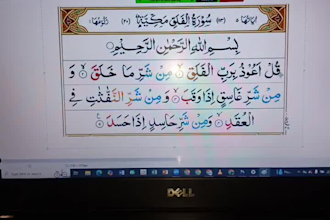 سُوْرَةُ الْفَلَقِ مَكِّيَّةٌ
بِسْمِ اللهِ الرَّحْمٰنِ الرَّحِيْمِ
قُلْ اَعُوْذُ بِرَبِّ الْفَلَقِ ۙ مِنْ شَرِّ مَا خَلَقَ ۙ وَ
مِنْ شَرِّ غَاسِقٍ اِذَا وَقَبَ ۙ وَمِنْ شَرِّ النَّفّٰثٰتِ فِى
الْعُقَدِ ۙ وَمِنْ شَرِّ حَاسِدٍ اِذَا حَسَدَ
DELL